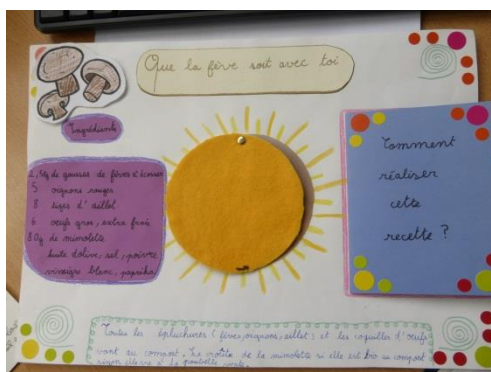 Que la fève soit avec toi
Ingrédients
2,5kg de gousses de fèves à écosser
5 oignons rouges
8 tiges d'aillet
6 oeufs gros, extra frais
80g de mimolette
huile d'olive, sel, poivre
vinaigre blanc, paprika
Comment
réaliser
cette
recette ?
Toutes les épluchures (fèves, oignons, aillet) et les coquilles d'oeufs
vont au compost. La croûte de la mimolette si elle est bio au compost
sinon elle va à la poubelle verte.